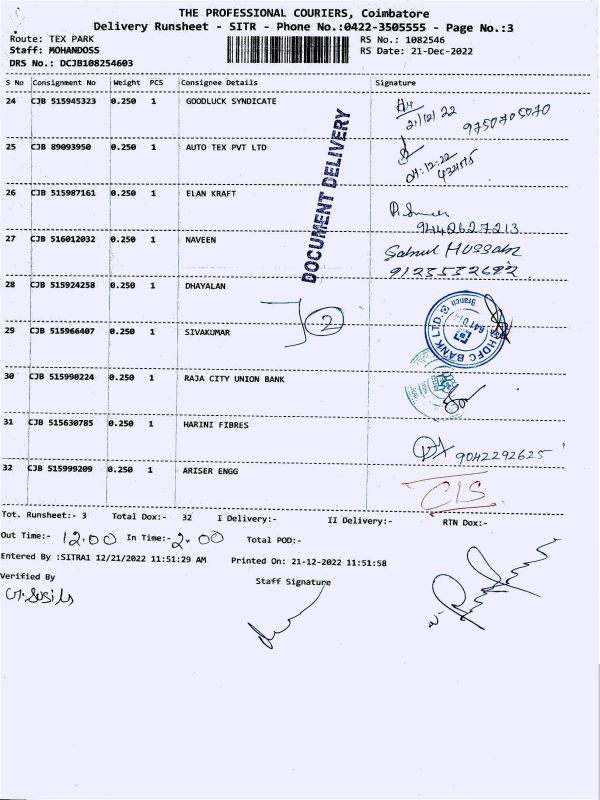 THE PROFESSIONAL COURIERS, Coimbatore
Delivery Runsheet - SITR - Phone No.:0422-3505555 - Page No.:3
Route: TEX PARK RS No.: 1082546
Staff: MOHANDOSS RS Date: 21-Dec-2022
DRS No.: DCJB108254603
S No Consignment No Weight PCS Consignee Details Signature
24 CJB 515945323 0.250 1 GOODLUCK SYNDICATE
21/12/22 9750705070
25 CJB 89093950 0.250 1 AUTO TEX PVT LTD
DOCUMENT DELIVERY
26 CJB 515987161 0.250 1 ELAN KRAFT
9442627213
27 CJB 516012032 0.250 1 NAVEEN
28 CJB 515924258 0.250 1 DHAYALAN
2
HDFC BANK LTD.
Branch
29 CJB 515966407 0.250 1 SIVAKUMAR
30 CJB 515990224 0.250 1 RAJA CITY UNION BANK
31 CJB 515630785 0.250 1 HARINI FIBRES
9042292625
32 CJB 515999209 0.250 1 ARISER ENGG
CIS
Tot. Runsheet:- 3 Total Dox:- 32 I Delivery:- II Delivery:- RTN Dox:-
Out Time:- 12.00 In Time:- 2.00 Total POD:-
Entered By :SITRA1 12/21/2022 11:51:29 AM Printed On: 21-12-2022 11:51:58
Verified By Staff Signature